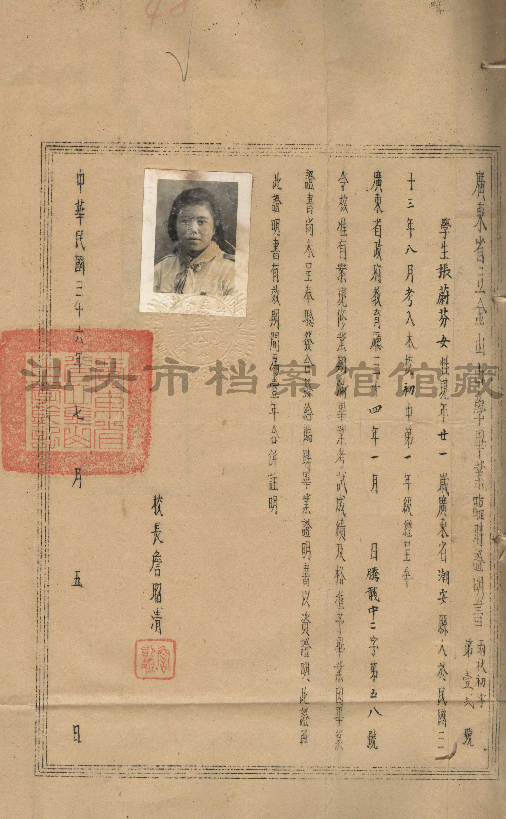 廣東省立金山中學畢業臨時證明書
雨秋初字
第壹弍號
學生張蔚芬女性現年廿一歲廣東省潮安縣人於民國三
十三年八月考入本校初中第一年級經呈奉
廣東省政府教育廳三十四年一月 日騰韶中二字第五八號
令核准有案現修業期滿畢業考試成績及格准予畢業因畢業
證書尚未呈奉驗發合發給臨時畢業證明書以資證明此證
此證明書有效期間為壹年合併証明
校長詹昭清
中華民國三十六年七月五日
汕头市档案馆馆藏